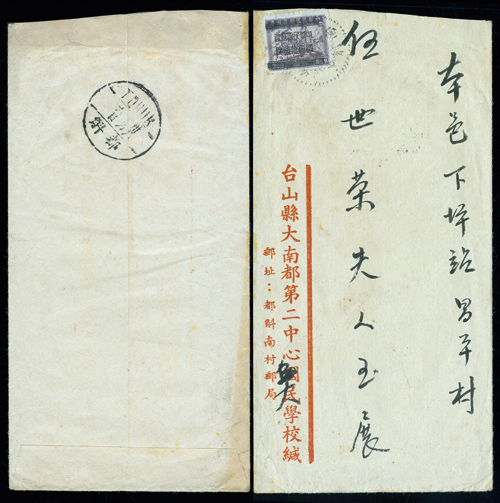 本邑下坪站昌平村
任世荣夫人玉展
台山縣大南都第二中心國民學校緘
郵址：都斛南村郵局